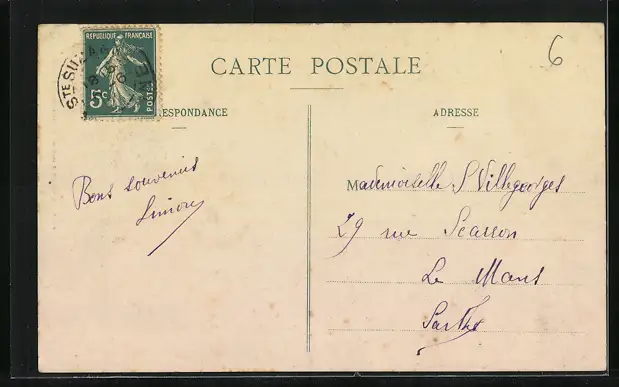 REPUBLIQUE FRANÇAISE
5c
POSTES
STE SU
6
CARTE POSTALE
RESPONDANCE
ADRESSE
Bons souvenirs
Simon
Mademoiselle S Villegeorges
29 rue Scarron
Le Mans
Sarthe